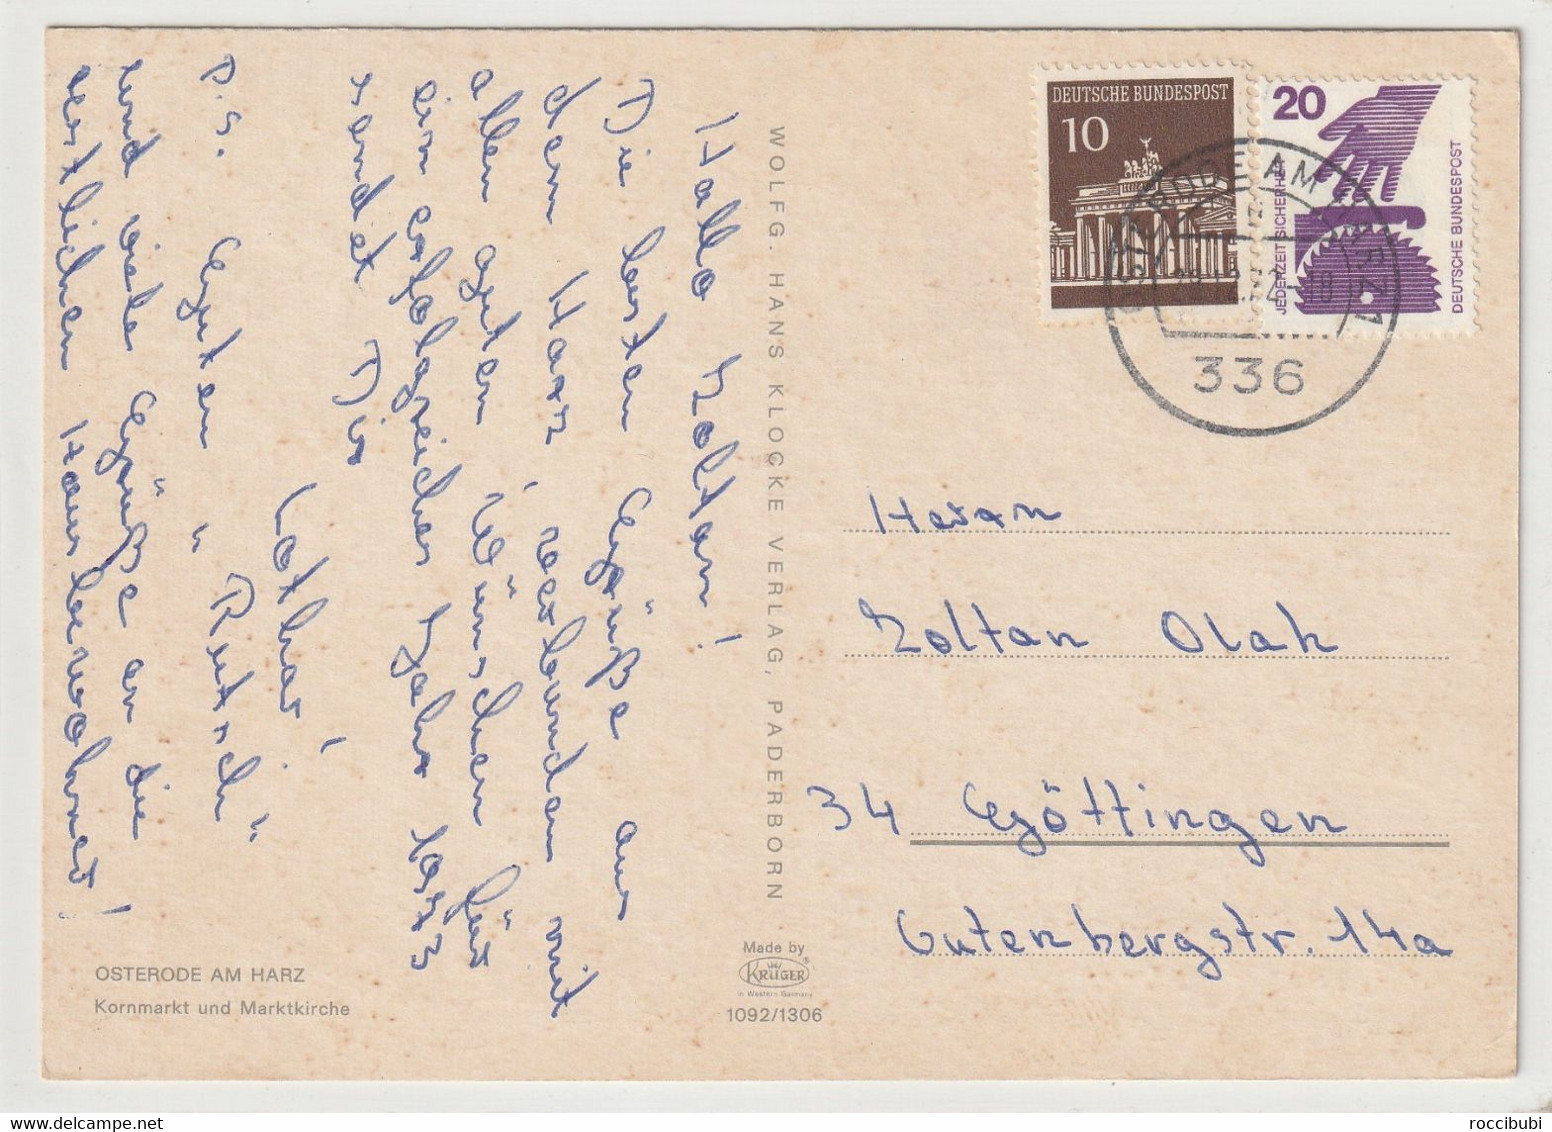 Hallo Zoltan!
Die besten Grüße aus
dem Harz, verbunden mit
allen guten Wünschen für
ein erfolgreiches Jahr 1973
sendet Dir
Lothar!
P.S. Guten "Rutsch"
und viele Grüße an die
restlichen Hausbewohner!
WOLFG. HANS KLOCKE VERLAG, PADERBORN
OSTERODE AM HARZ
Kornmarkt und Marktkirche
Made by
KRÜGER
in Western Germany
1092/1306
DEUTSCHE BUNDESPOST
10
20
JEDERZEIT SICHERHEIT
DEUTSCHE BUNDESPOST
OSTERODE AM HARZ 1
336
Herrn
Zoltan Olah
34 Göttingen
Gutenbergstr. 14a
roccibubi